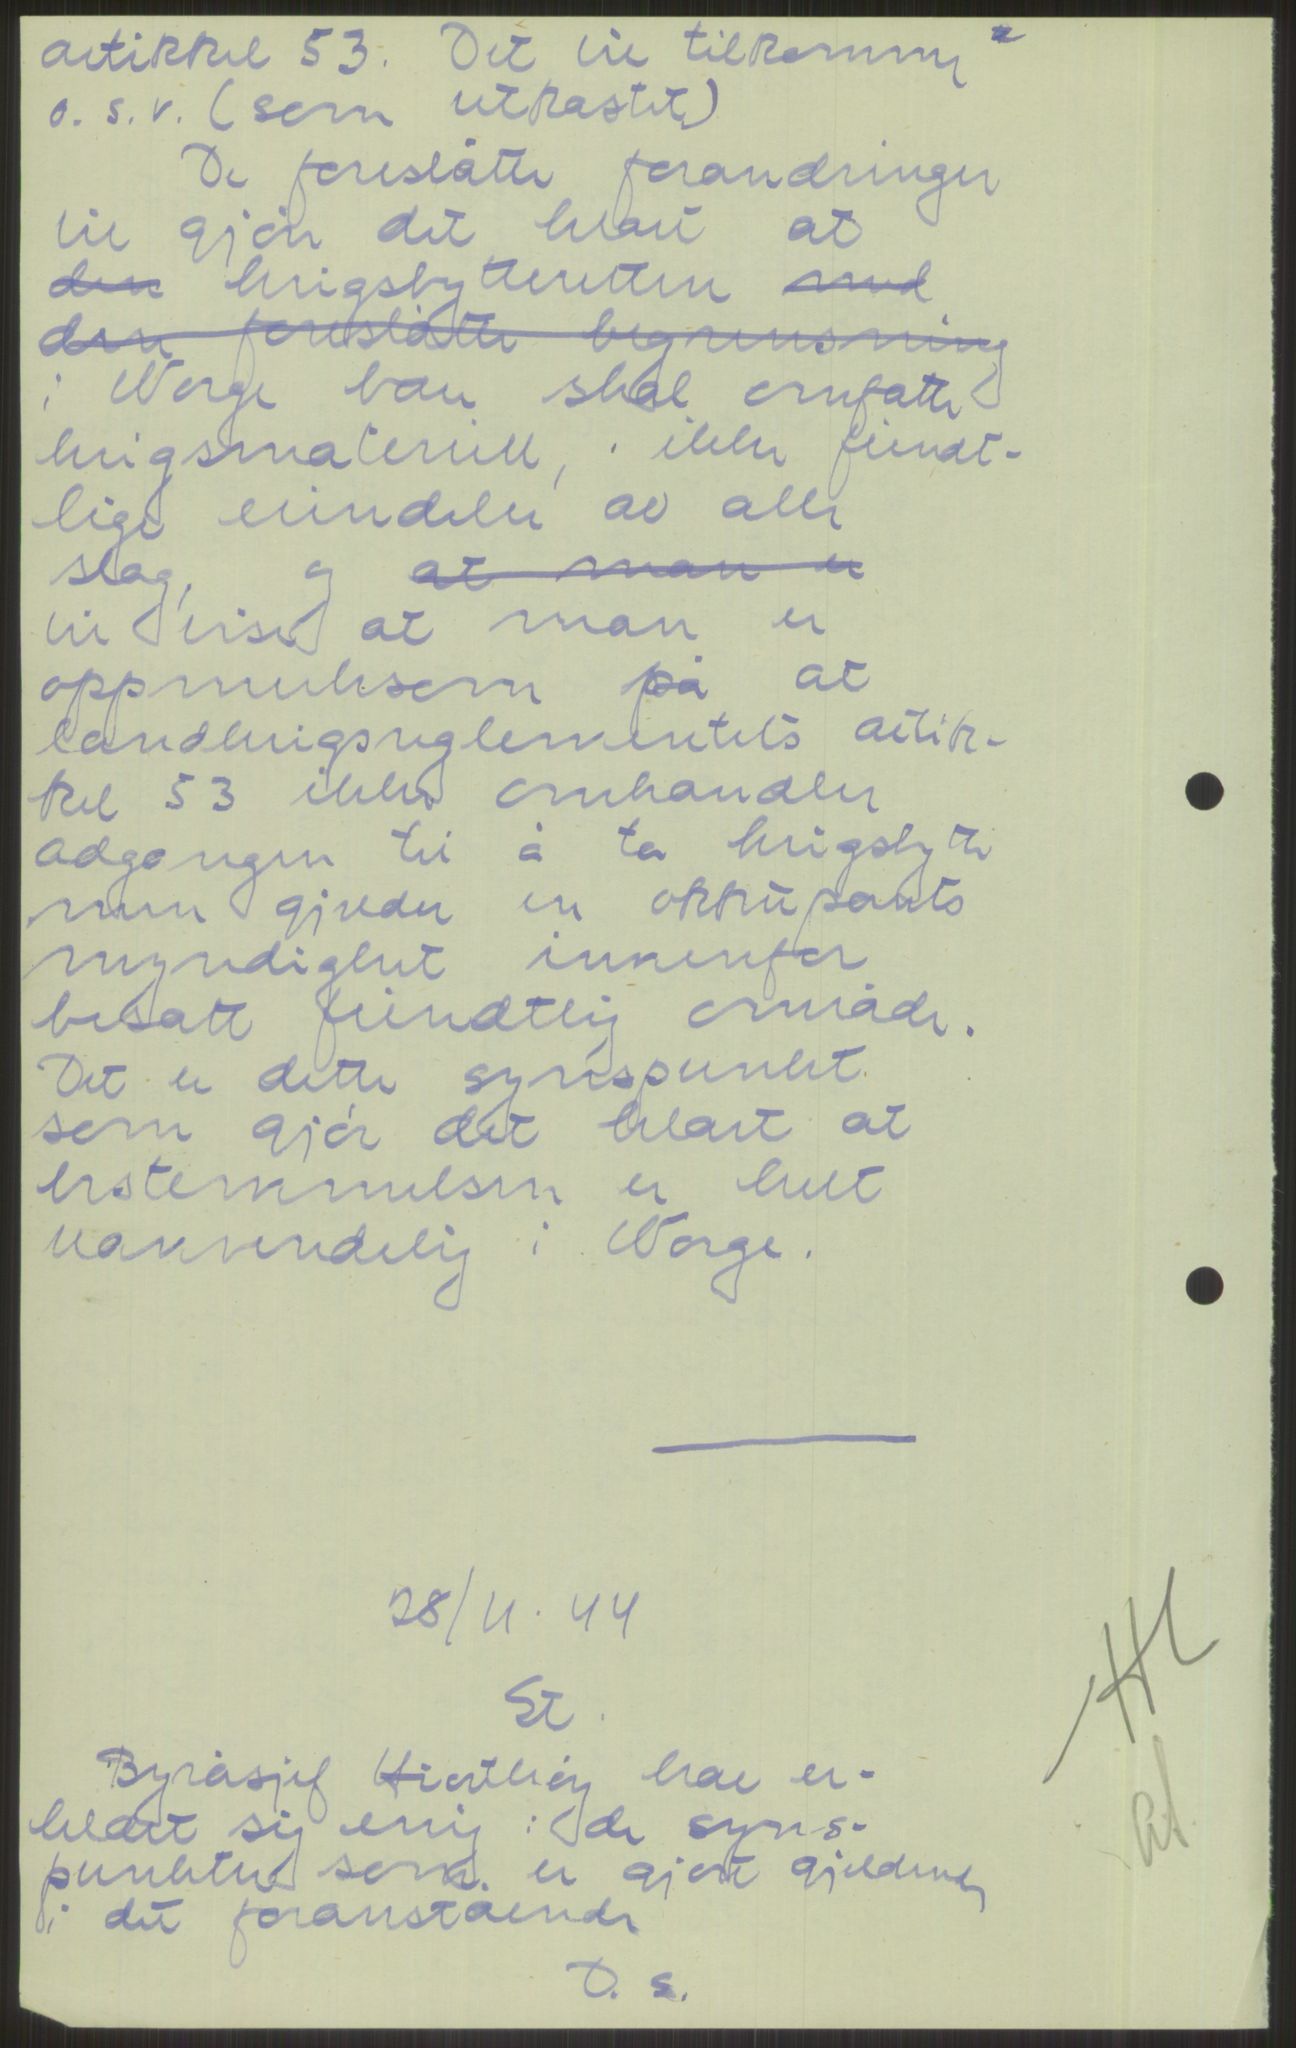 artikkel 53. Det vil tilkomme"
o.s.v. (som utkastet)
De foreslåtte forandringer
vil gjøre det klart at
den krigsbytteretten med
den foreslåtte begrensning
i Norge bare skal omfatte
krigsmateriell, ikke fiendt-
lige eiendeler av alle
slag, og at man er
vil vise at man er
oppmerksom på at
landkrigsreglementets artik-
kel 53 ikke omhandler
adgangen til å ta krigsbytte
men gjelder en okkupants
myndighet innenfor
besatt fiendtlig område.
Det er dette synspunkt
som gjør det klart at
bestemmelsen er helt
uanvendelig i Norge.
28/11. 44
St.
Byråsjef har er-
klært sig enig i de syns-
punkter som er gjort gjeldende
i det foranstående
D. s.